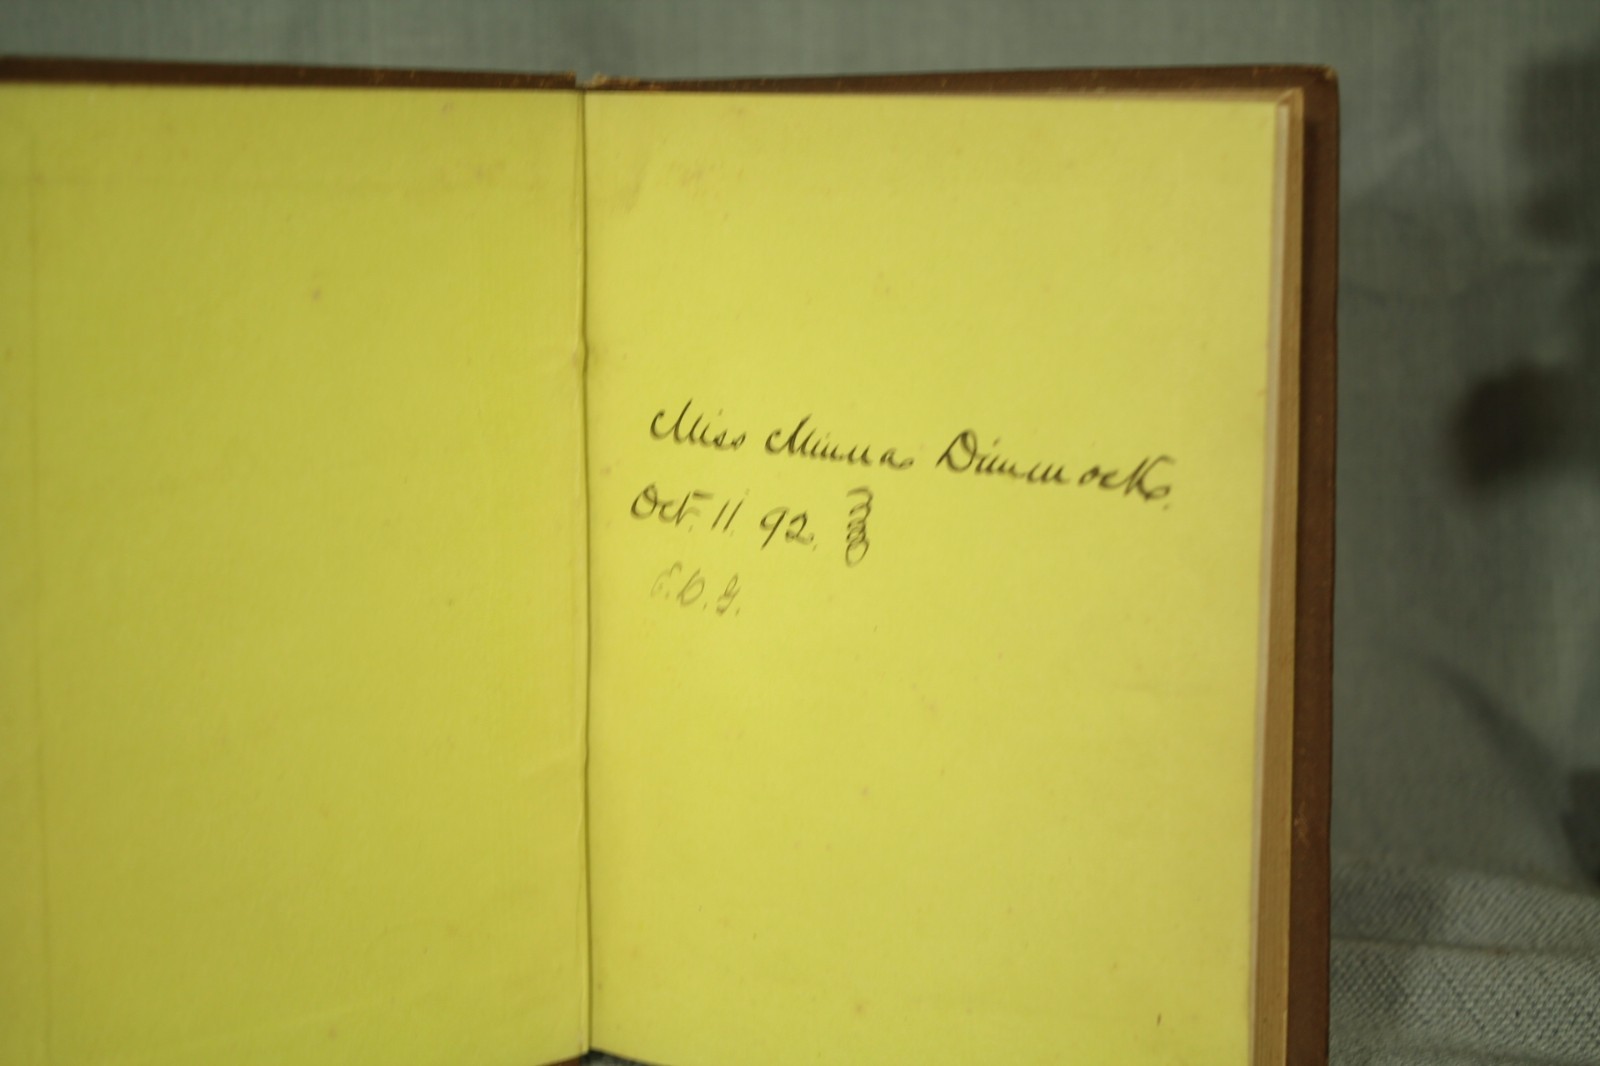 Miss Minna Dimmock.
Oct. 11. 92.
E.D.G.